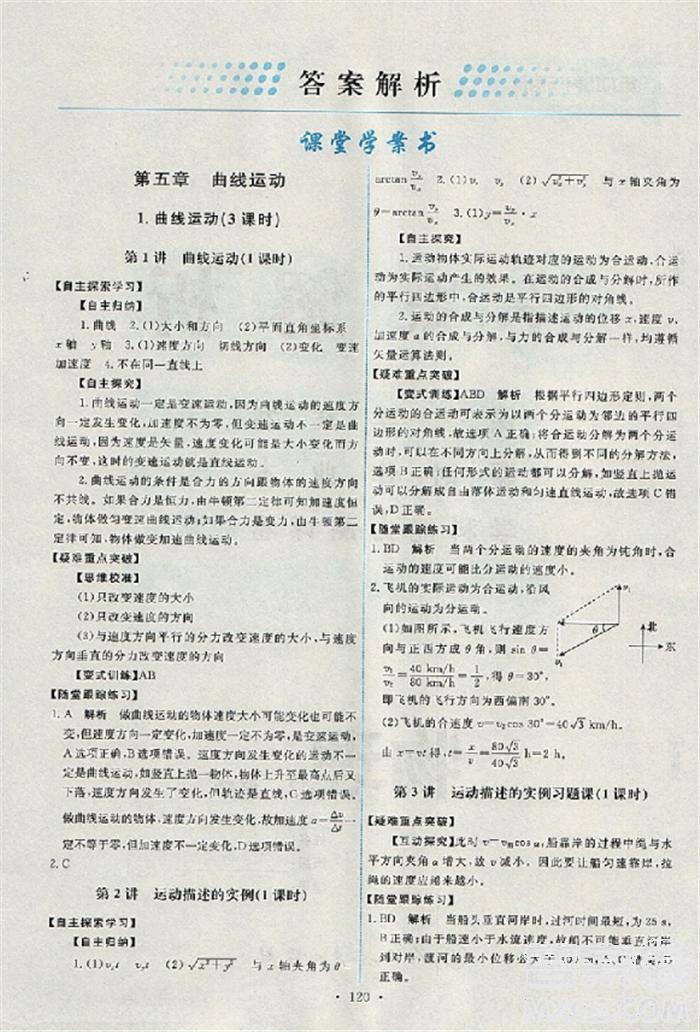 答案解析
课堂学案书
第五章 曲线运动
1.曲线运动(3课时)
第1讲 曲线运动(1课时)
【自主探索学习】
【自主归纳】
1.曲线 2.(1)大小和方向 (2)平面直角坐标系
x轴 y轴 3.(1)速度方向 切线方向 (2)变化 变速
加速度 4.不在同一直线上
【自主探究】
1.曲线运动一定是变速运动,因为曲线运动的速度方
向一定发生变化,加速度不为零,但变速运动不一定是曲
线运动,因为速度是矢量,速度变化可能是大小变化而方
向不变,这时的变速运动就是直线运动。
2.曲线运动的条件是合力的方向跟物体的速度方向
不共线。如果合力是恒力,由牛顿第二定律可知加速度恒
定,物体做匀变速曲线运动;如果合力是变力,由牛顿第二
定律可知,物体做变加速曲线运动。
【疑难重点突破】
【思维校准】
(1)只改变速度的大小
(2)只改变速度的方向
(3)与速度方向平行的分力改变速度的大小,与速度
方向垂直的分力改变速度的方向
【变式训练】AB
【随堂跟踪练习】
1.A 解析 做曲线运动的物体速度大小可能变化也可能不
变,但速度方向一定变化,加速度一定不为零,是变速运动,
A选项正确,B选项错误。速度方向发生变化的运动不一
定是曲线运动,如竖直上抛一物体,物体上升至最高点后又
下落,速度方向发生了变化,但轨迹是直线,C选项错误。
做曲线运动的物体,速度方向发生变化,故加速度a=Δv/Δt一
定不等于零,但不一定变化,D选项错误。
2.C
第2讲 运动描述的实例(1课时)
【自主探索学习】
【自主归纳】
1.(1)vₓt v_y t (2)√(x²+y²) 与x轴夹角为θ=
arctan v_y/vₓ 2.(1)vₓ v_y (2)√(vₓ²+v_y²) 与x轴夹角为
θ=arctan v_y/vₓ 3.(1)y=v_y/vₓ·x
【自主探究】
1.运动物体实际运动轨迹对应的运动为合运动,合运
动为实际运动产生的效果。在运动的合成与分解时,所作
的平行四边形中,合运动是平行四边形的对角线。
2.运动的合成与分解是指描述运动的位移x,速度v,
加速度a的合成与分解,与力的合成与分解一样,均遵循
矢量运算法则。
【疑难重点突破】
【变式训练】ABD 解析 根据平行四边形定则,两个
分运动的合运动可表示为以两个分运动为邻边的平行四
边形的对角线,故选项A正确;将合运动分解为两个分运
动时,可以在不同方向上分解,从而得到不同的分解方法,
选项B正确;任何形式的运动都可以分解,如竖直上抛运
动可以分解成自由落体运动和匀速直线运动,故选项C错
误,D正确。
【随堂跟踪练习】
1.BD 解析 当两个分运动的速度的夹角为钝角时,合
运动的速度可能比分运动的速度小。
2.飞机的实际运动为合运动,沿风
向的运动为分运动。
(1)如图所示,飞机飞行速度方
向与正西方成θ角,则sin θ=
v₁/v₂=40 km/h/80 km/h=1/2,得θ=30°,
即飞机的飞行方向为西偏南30°。
v₁
v
θ
v₂
北
东
(2)飞机的合速度v=v₂cos 30°=40√3 km/h
由x=vt得,t=x/v=80√3/40√3 h=2 h。
第3讲 运动描述的实例习题课(1课时)
【疑难重点突破】
【互动探究】此时v=v_m cos α,船靠岸的过程中缆与水
平方向夹角α增大,故v减小。因此要让船匀速靠岸,拉
绳的速度应越来越小。
【随堂跟踪练习】
1.BD 解析 当船头垂直河岸时,过河时间最短,为25 s,
B正确;由于船速小于水流速度,故船不可能垂直河岸行驶
到对岸,渡河的最小位移
正确。
120